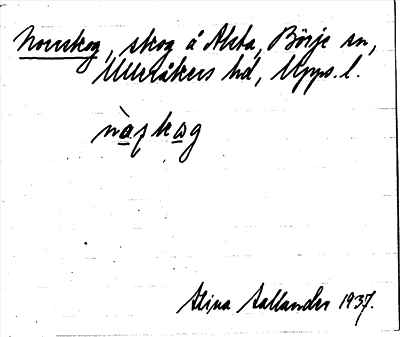 Norrskog, skog å Alsta, Börje sn,
Ulleråkers hd, Upps. l.
nạ̀ʃkạg
Stina Sallander 1937.